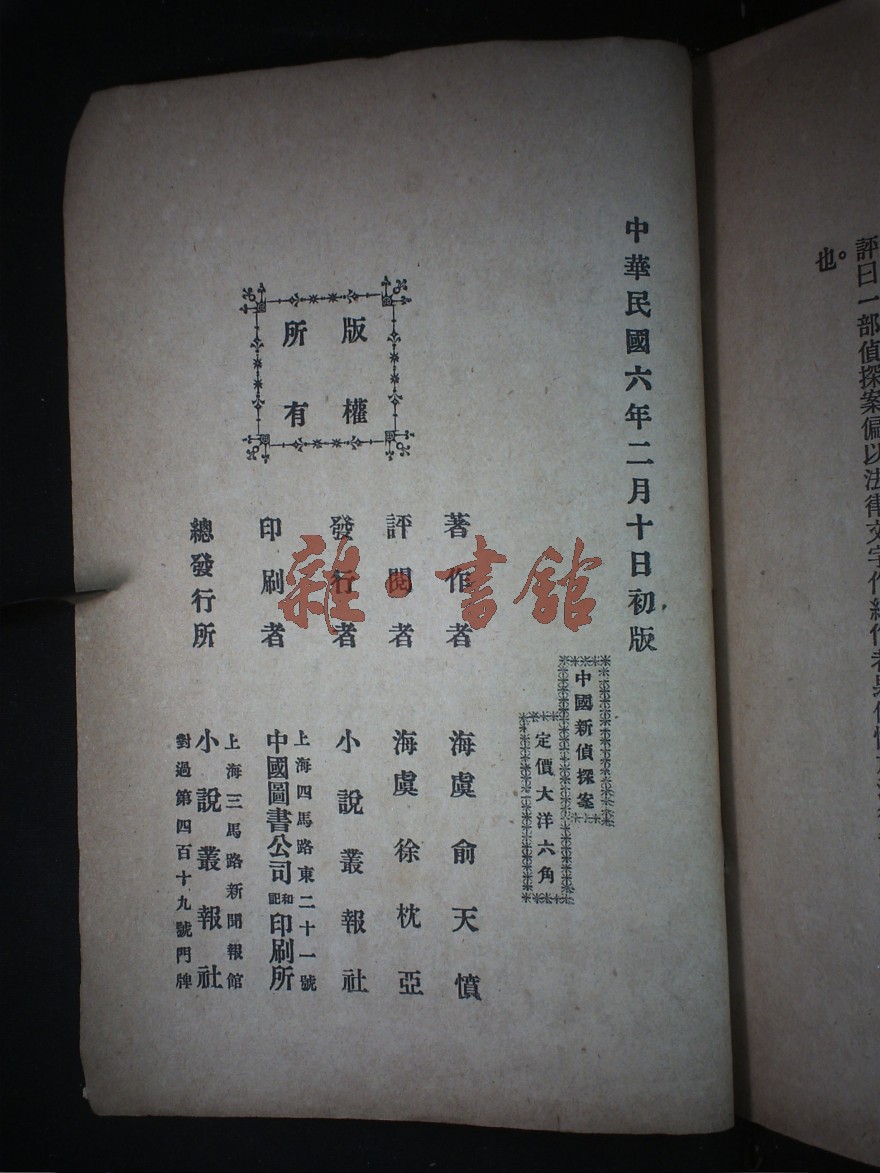 評曰一部偵探案偏以法律文字作
也。
中華民國六年二月十日初版
中國新偵探案
定價大洋六角
著作者 海虞俞天憤
評閱者 海虞徐枕亞
發行者 小說叢報社
上海四馬路東二十一號
印刷者 中國圖書公司和記印刷所
上海三馬路新聞報館
總發行所 小說叢報社
對過第四百十九號門牌
版權
所有
雜·書館